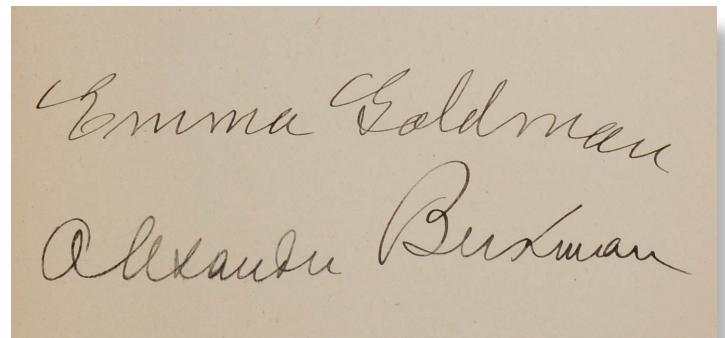 Emma Goldman
Alexander Berkman